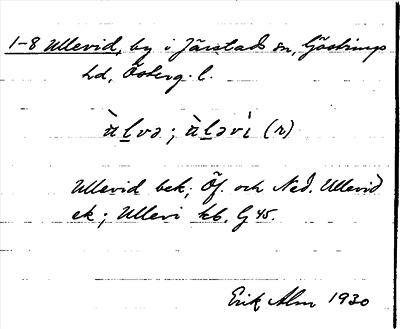 1-8 Ullevid, by i Järstads sn, Göstrings
hd, Österg. l.
ùlvə; ùləvì (r)
Ullevid bek; Öf. och Ned. Ullevid
ek; Ullevi kb. G 45.
Erik Alm 1930